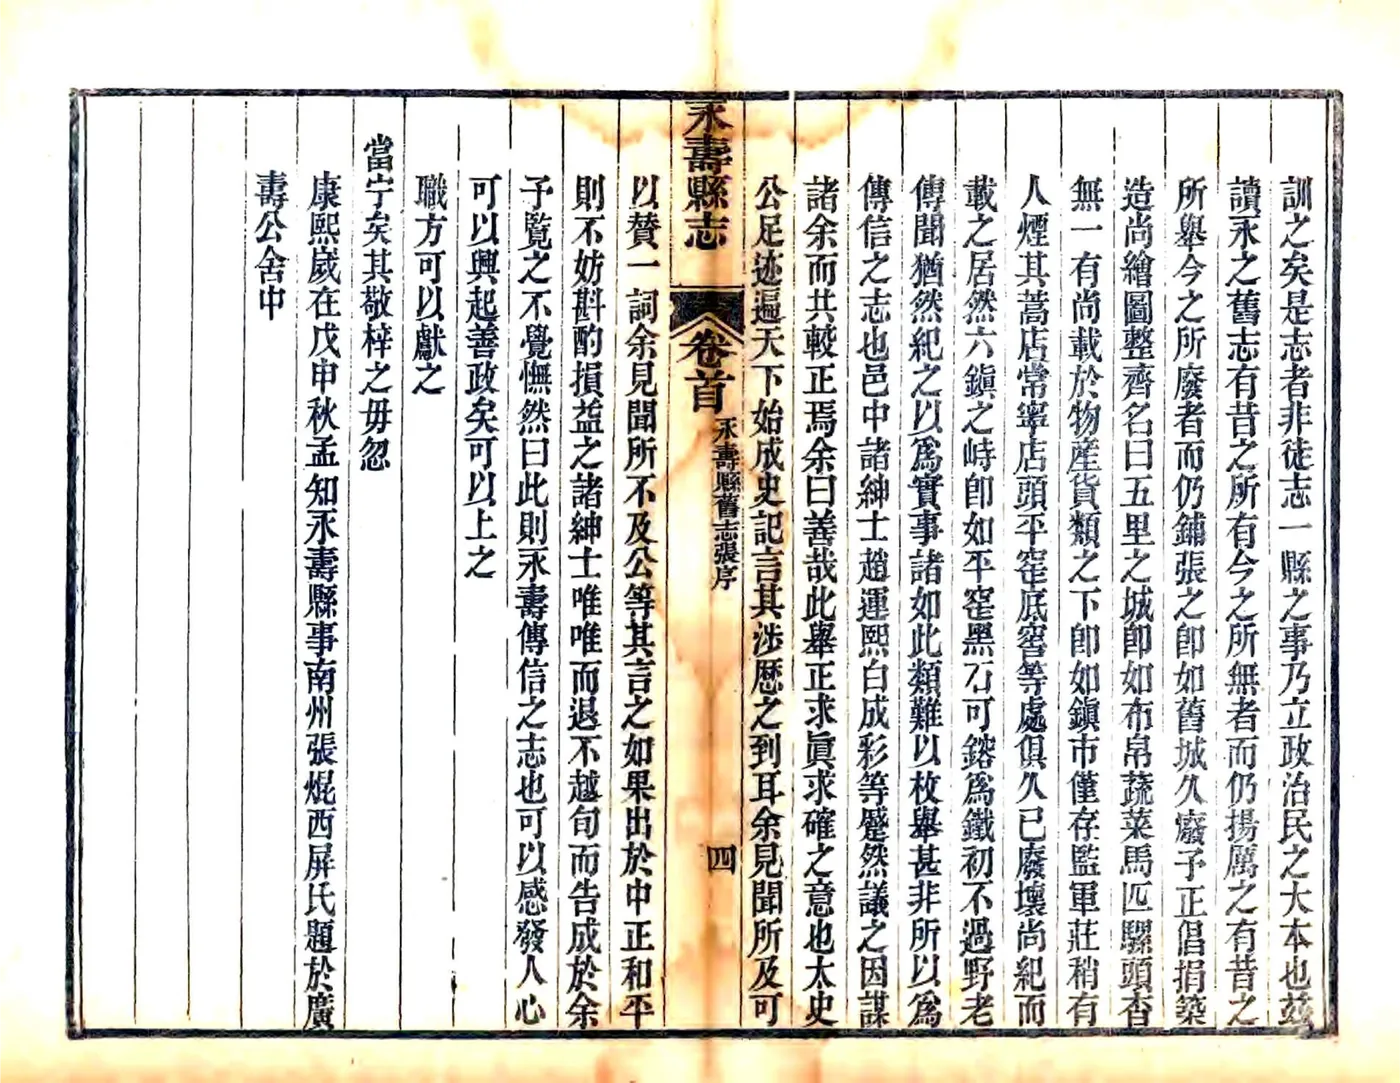 訓之矣是志者非徒志一縣之事乃立政治民之大本也茲
讀永之舊志有昔之所有今之所無者而仍揚厲之有昔之
所舉今之所廢者而仍鋪張之卽如舊城久廢予正倡捐築
造尚繪圖整齊名曰五里之城卽如布帛蔬菜馬匹騾頭杳
無一有尚載於物產貨類之下卽如鎭市僅存監軍莊稍有
人煙其蒿店常寧店頭平窑底窖等處俱久已廢壞尚紀而
載之居然六鎭之峙卽如平窑黑石可鎔爲鐵初不過野老
傳聞猶然紀之以爲實事諸如此類難以枚舉甚非所以爲
傳信之志也邑中諸紳士趙運熙白成彩等蹙然議之因謀
諸余而共較正焉余曰善哉此舉正求眞求確之意也太史
公足迹遍天下始成史記言其涉歷之到耳余見聞所及可
永壽縣志
卷首
永壽縣舊志張序
四
以贊一詞余見聞所不及公等其言之如果出於中正和平
則不妨斟酌損益之諸紳士唯唯而退不越旬而告成於余
予覽之不覺憮然曰此則永壽傳信之志也可以感發人心
可以興起善政矣可以上之
職方可以獻之
當宁矣其敬梓之毋忽
康熙歲在戊申秋孟知永壽縣事南州張焜西屏氏題於廣
壽公舍中